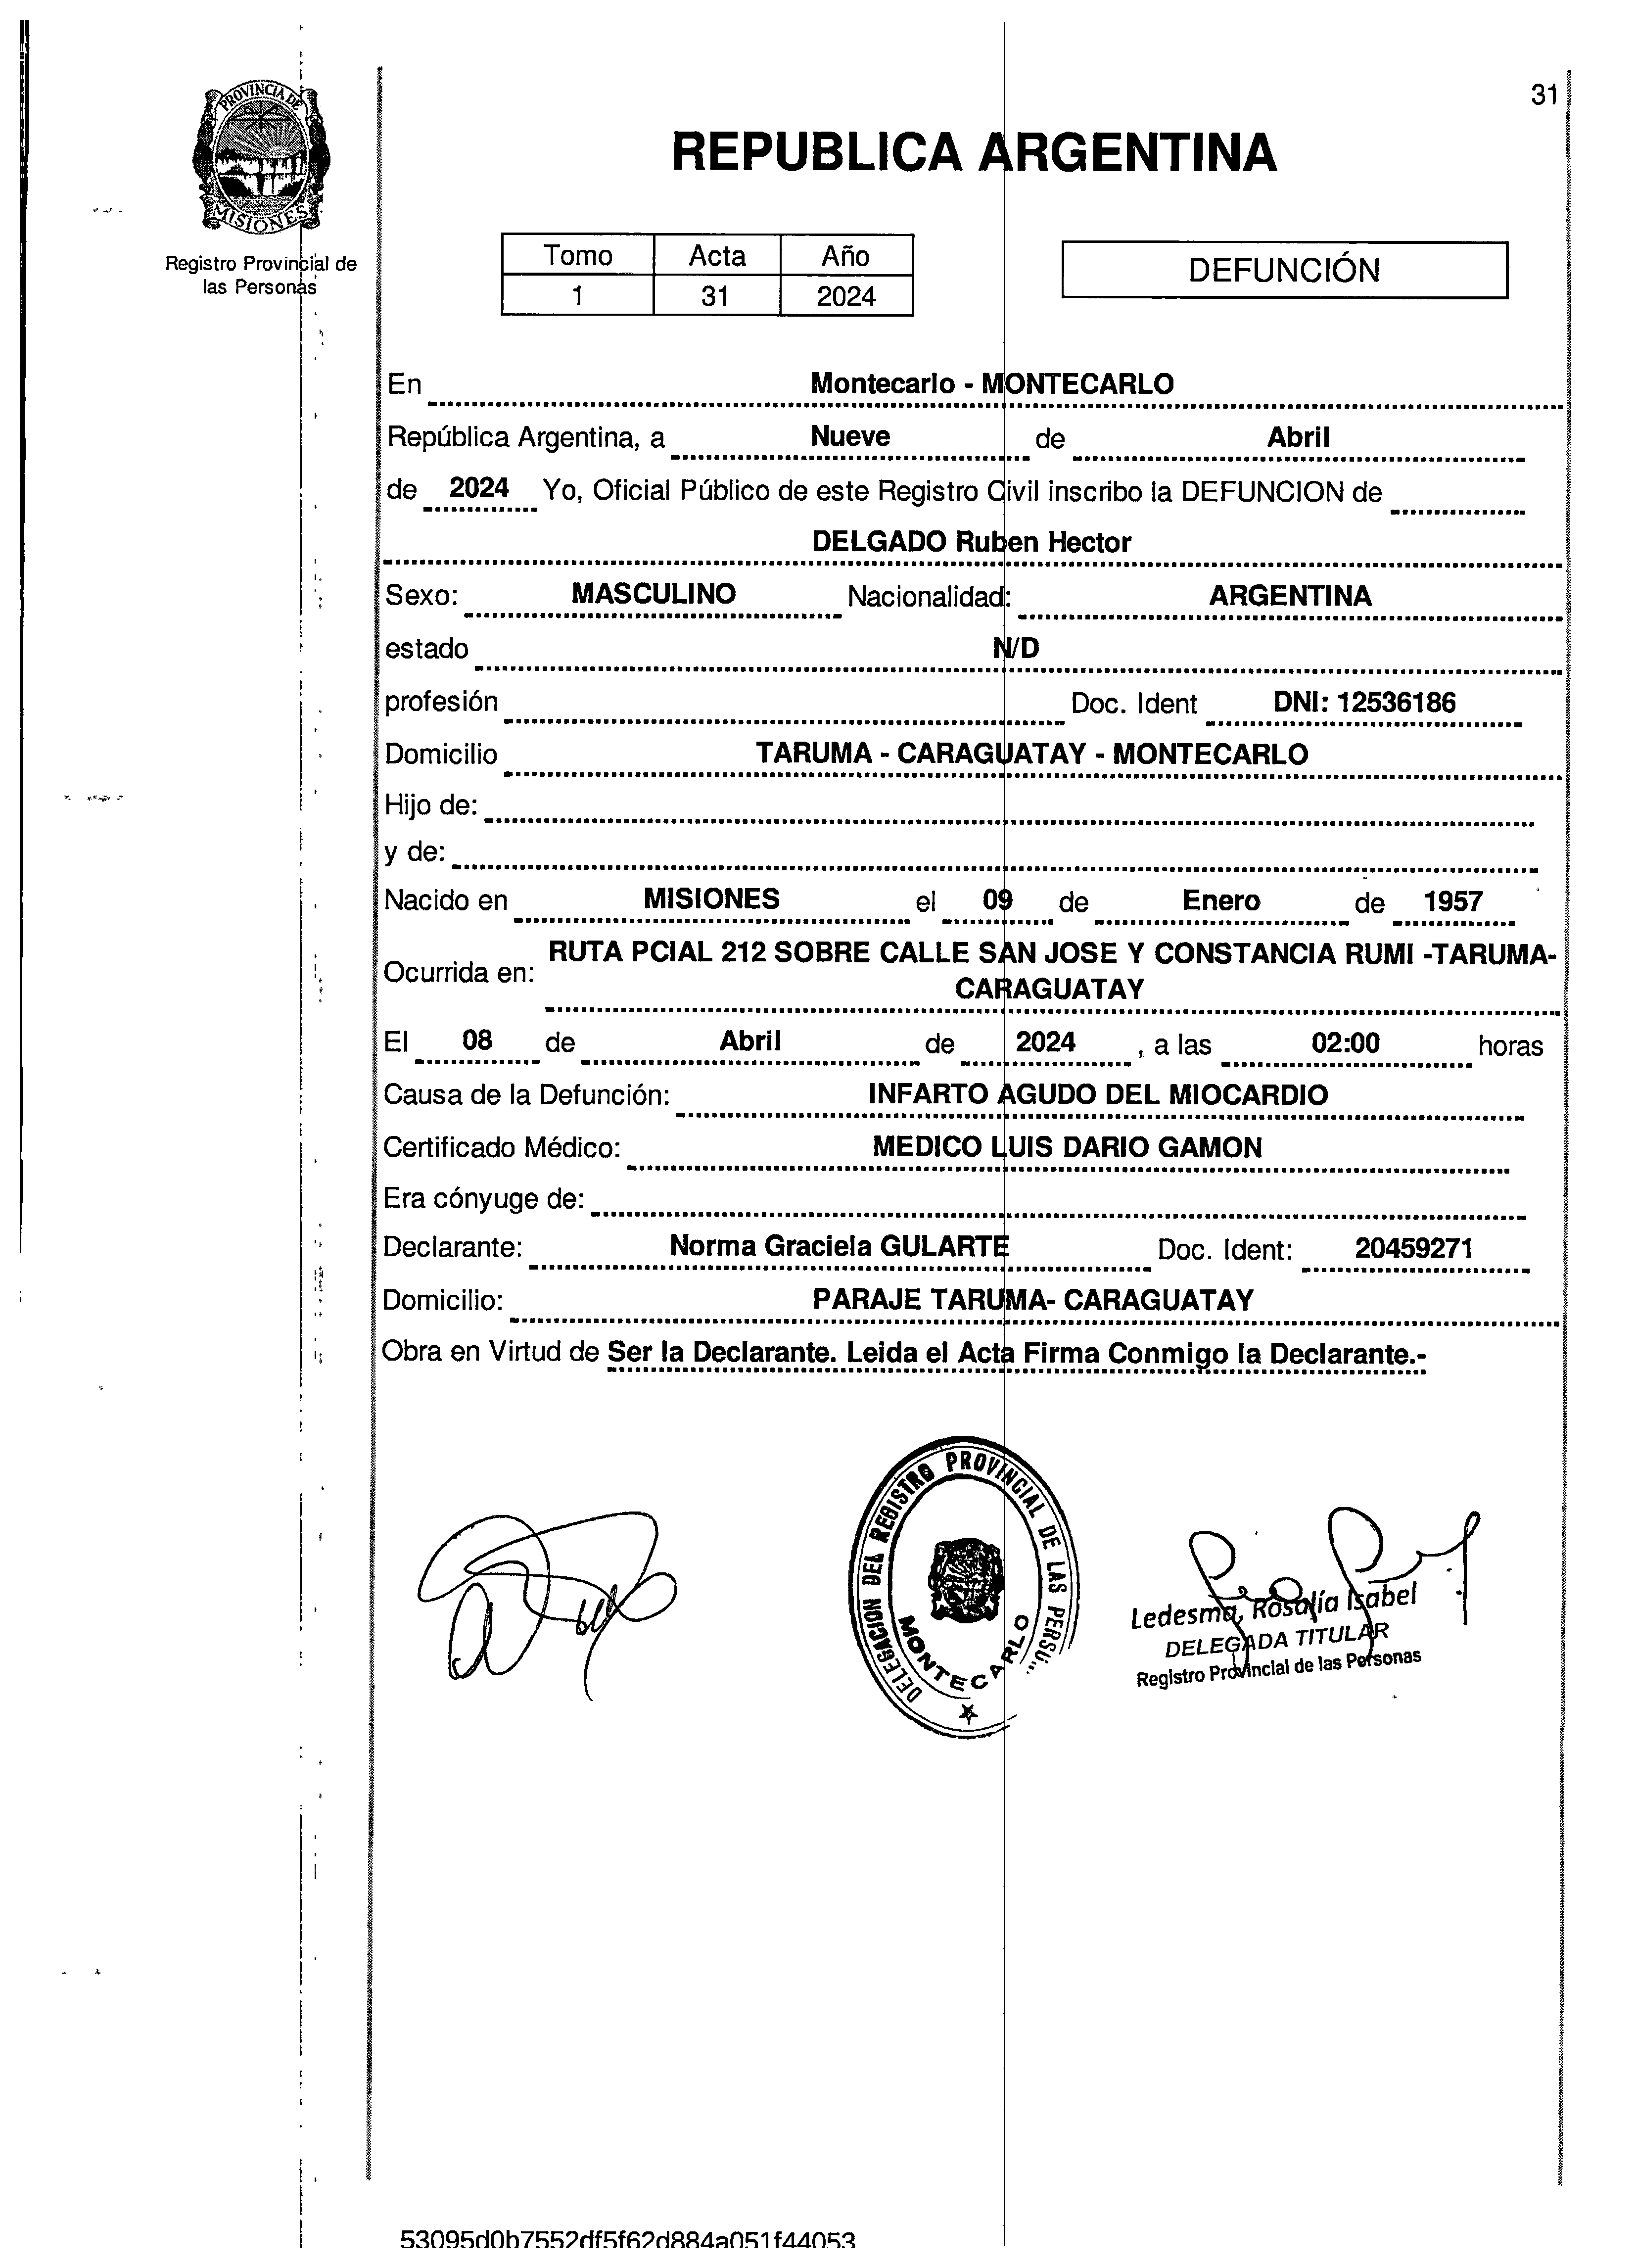 31
PROVINCIA DE
MISIONES
Registro Provincial de
las Personas
REPUBLICA ARGENTINA
Tomo Acta Año
1 31 2024
DEFUNCIÓN
En Montecarlo - MONTECARLO
República Argentina, a Nueve de Abril
de 2024 Yo, Oficial Público de este Registro Civil inscribo la DEFUNCION de
DELGADO Ruben Hector
Sexo: MASCULINO Nacionalidad: ARGENTINA
estado N/D
profesión Doc. Ident DNI: 12536186
Domicilio TARUMA - CARAGUATAY - MONTECARLO
Hijo de:
y de:
Nacido en MISIONES el 09 de Enero de 1957
RUTA PCIAL 212 SOBRE CALLE SAN JOSE Y CONSTANCIA RUMI -TARUMA-
Ocurrida en: CARAGUATAY
El 08 de Abril de 2024 , a las 02:00 horas
Causa de la Defunción: INFARTO AGUDO DEL MIOCARDIO
Certificado Médico: MEDICO LUIS DARIO GAMON
Era cónyuge de:
Declarante: Norma Graciela GULARTE Doc. Ident: 20459271
Domicilio: PARAJE TARUMA- CARAGUATAY
Obra en Virtud de Ser la Declarante. Leida el Acta Firma Conmigo la Declarante.-
DELEGACION DEL REGISTRO PROVINCIAL DE LAS
MONTECARLO
Ledesma, Rosalía Isabel
DELEGADA TITULAR
Registro Provincial de las Personas
53095d0b7552df5f62d884a051f44053